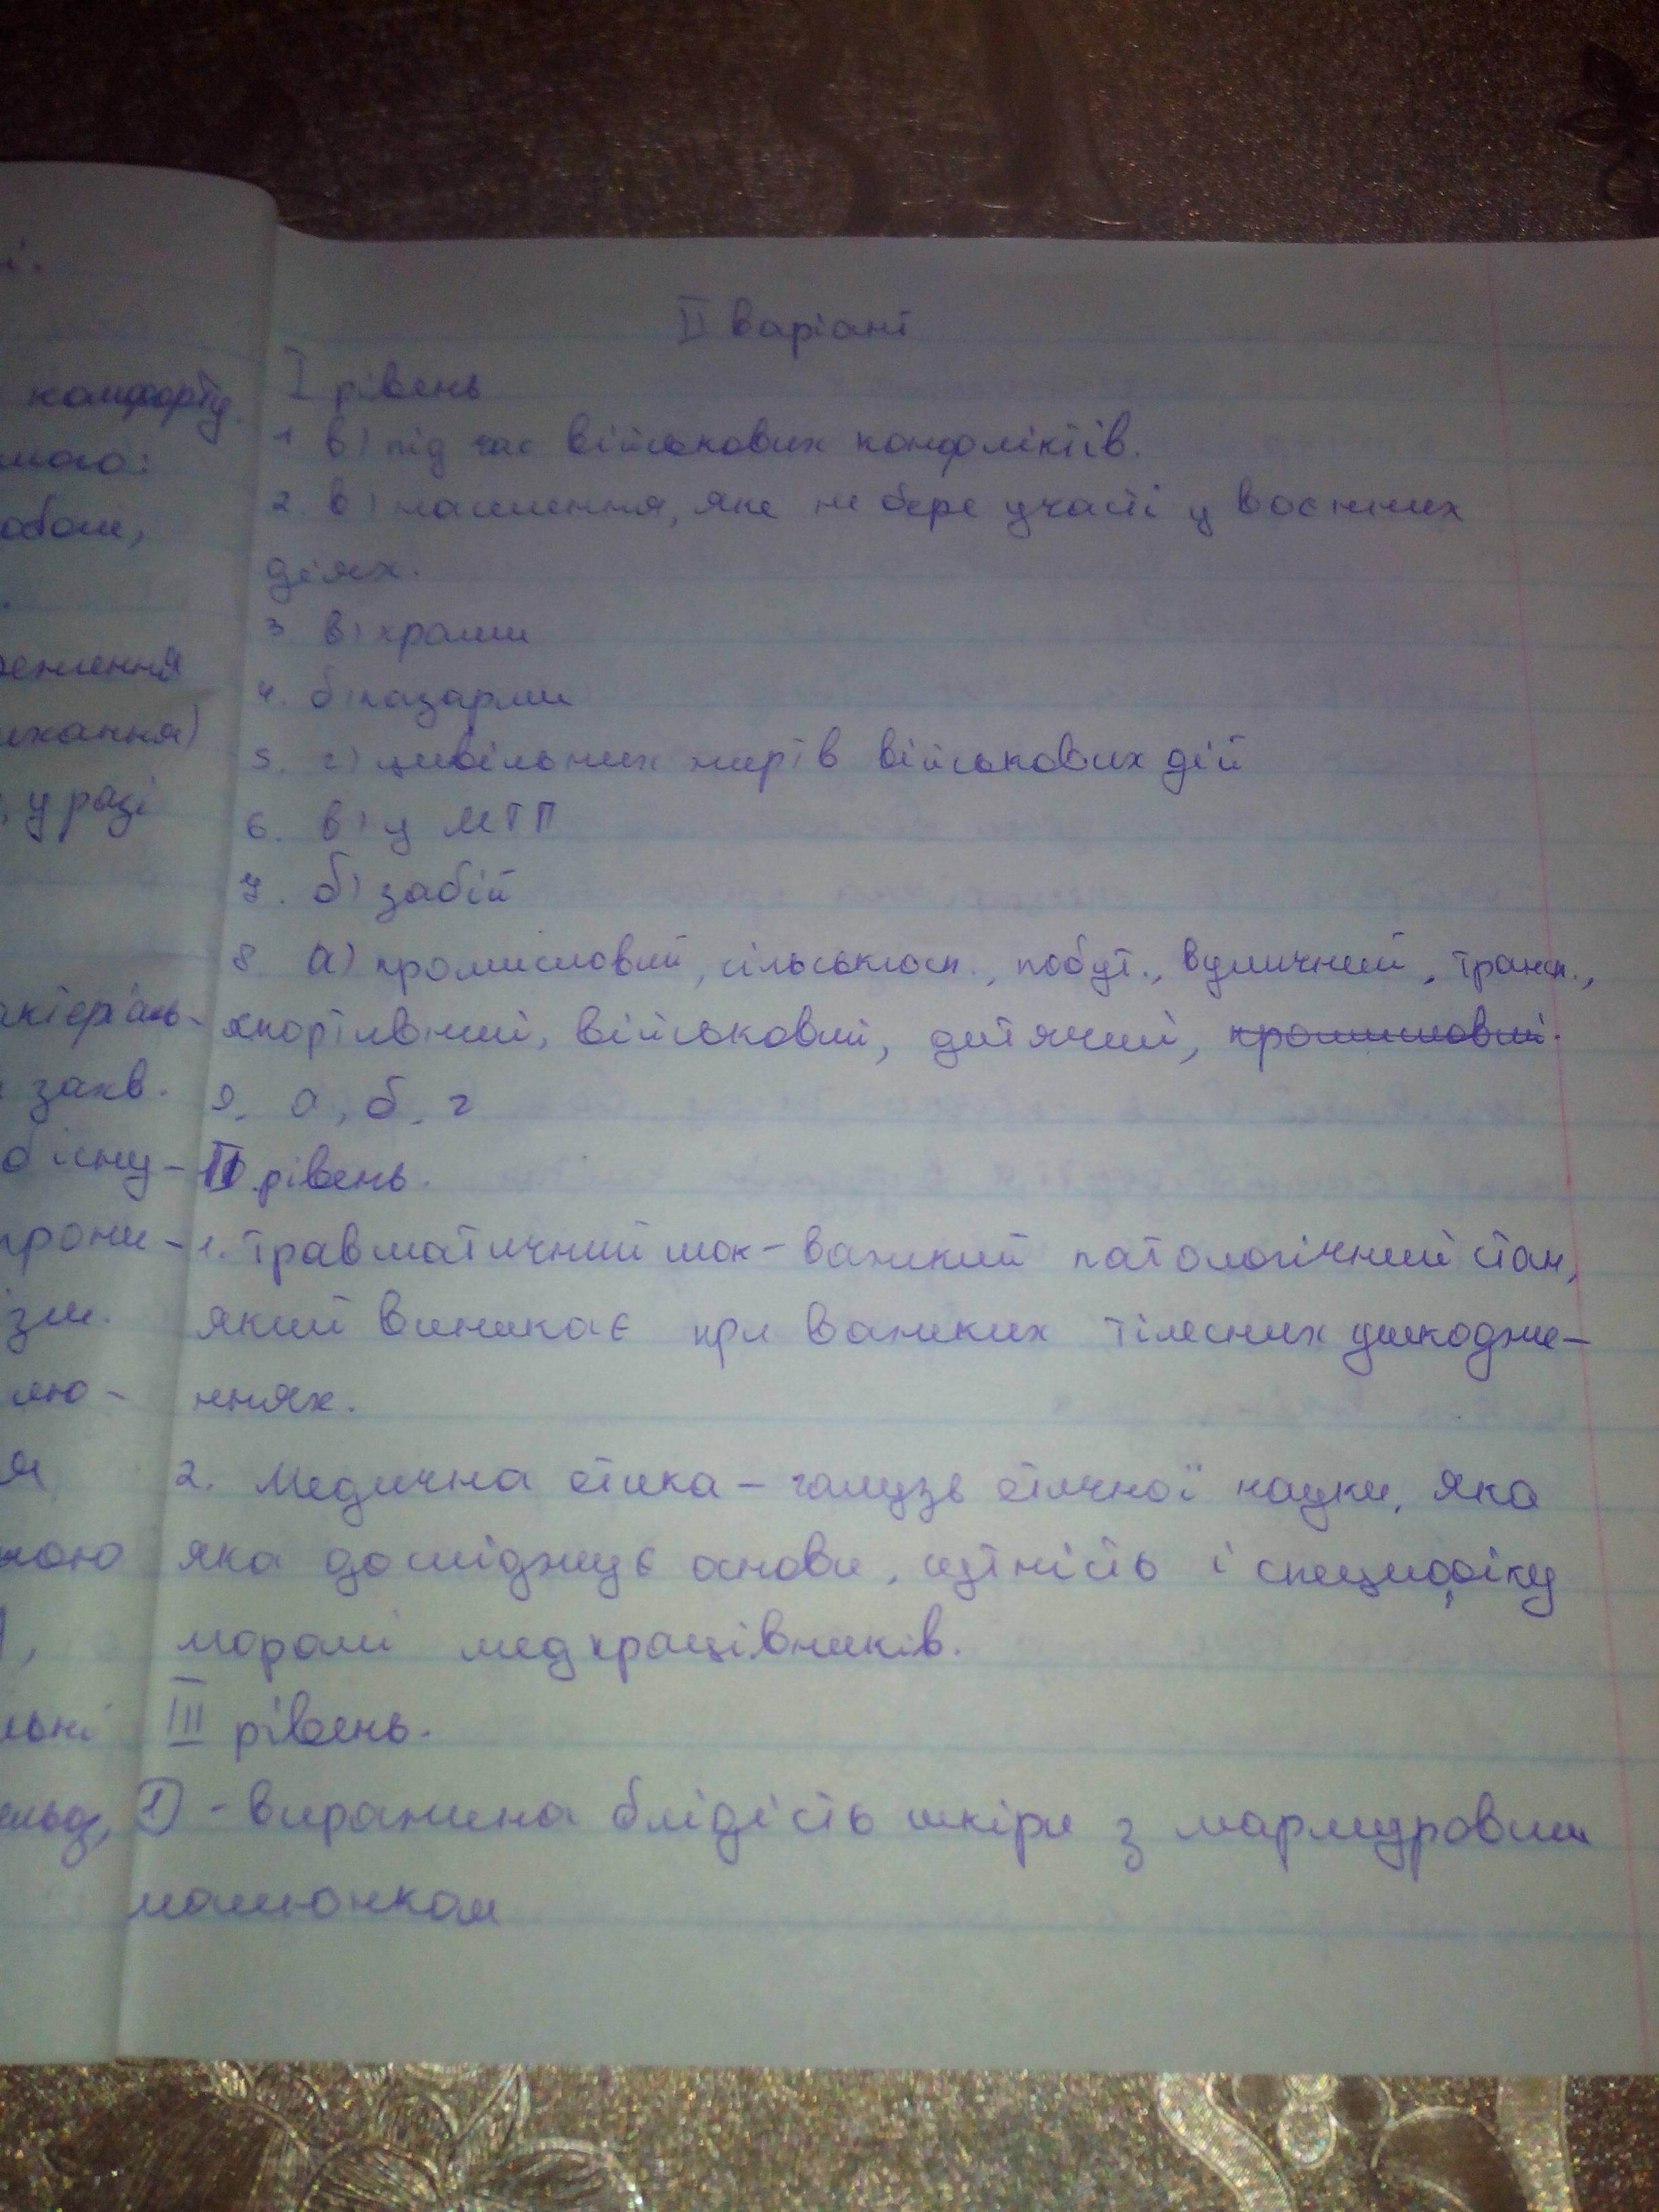 і.
комфорту.
мого:
обом,
ження
ихання)
, у разі
актеріаль-
захв.
обісну-
прони-
ізм.
лю-
я
ною
),
льні
ельд,
II варіант
I рівень
1 в) під час військових конфліктів.
2. в) населення, яке не бере участі у воєнних
діях.
3. в) храми
4. б) казарми
5. г) цивільних жертв військових дій
6. в) у МТП
7. б) забій
8 а) промисловий, сільськогосп., побут., вуличний, трансп.,
спортивний, військовий, дитячий, промисловий.
9. а, б, г
II рівень.
1. Травматичний шок - важкий патологічний стан,
який виникає при важких тілесних ушкодже-
ннях.
2. Медична етика - галузь етичної науки, яка
яка досліджує основи, сутність і специфіку
моралі медпрацівників.
III рівень.
1) - виражена блідість шкіри з мармуровим
малюнком